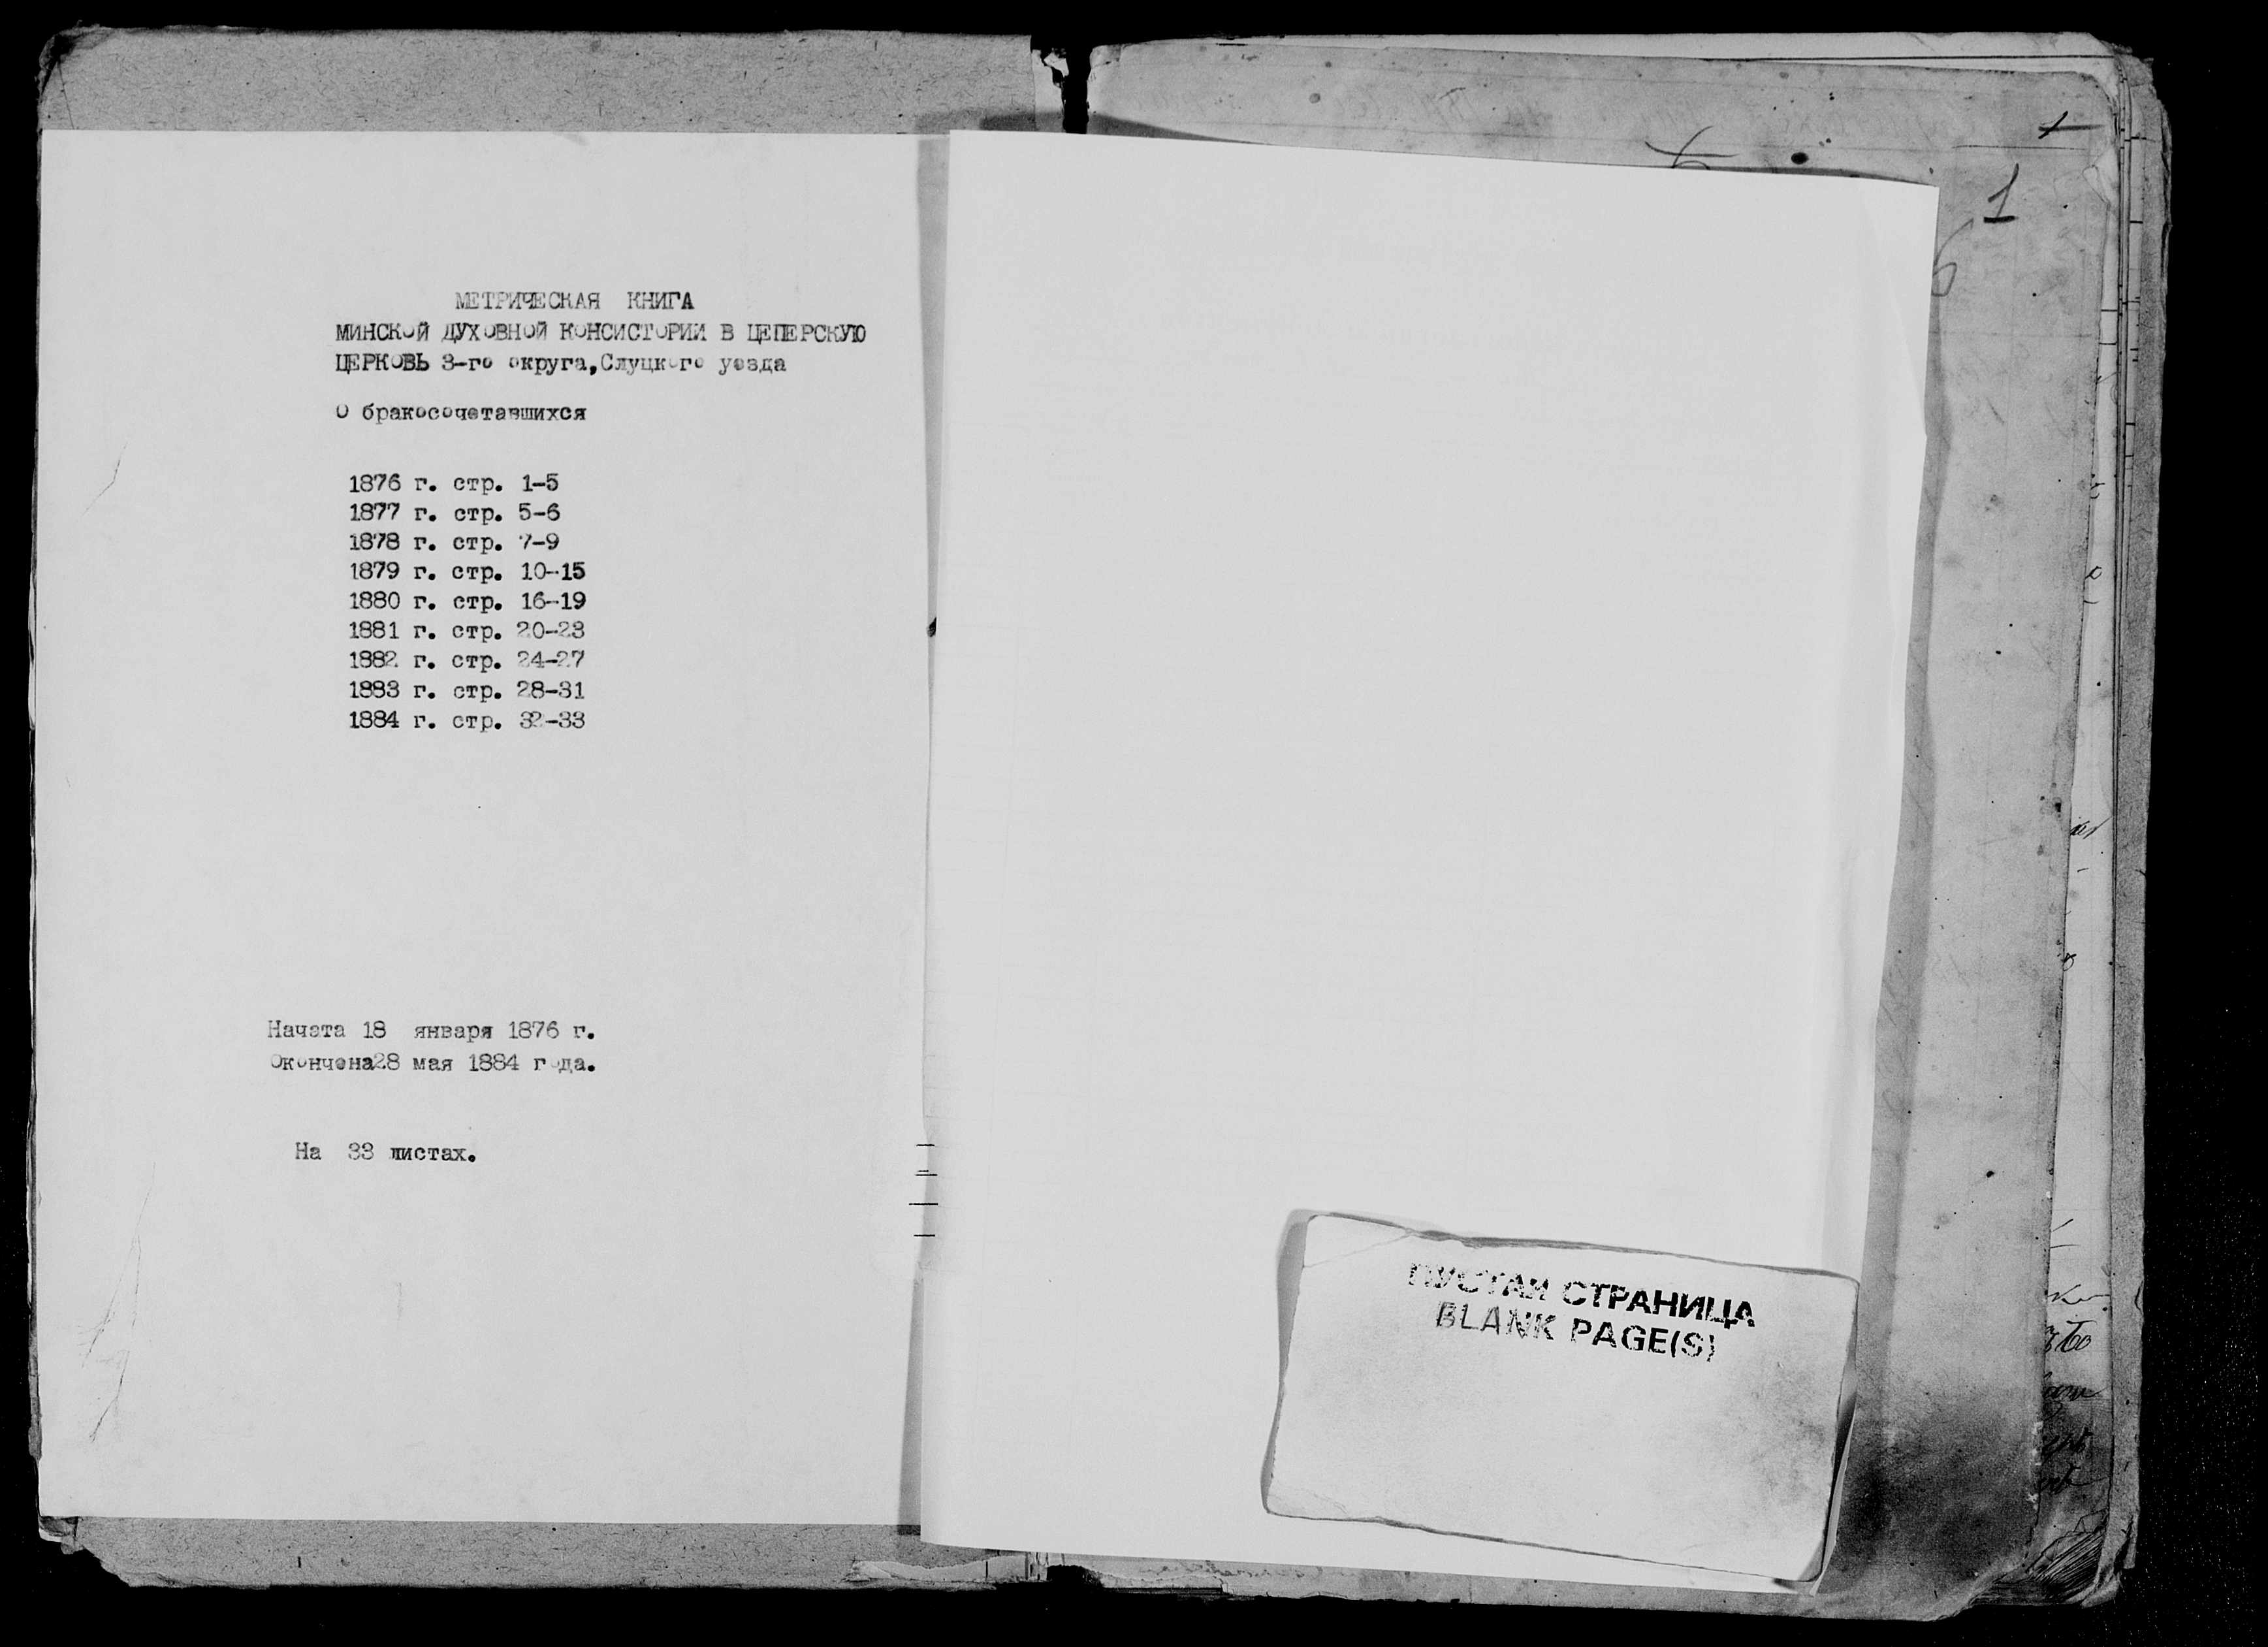 МЕТРИЧЕСКАЯ КНИГА
МИНСКОЙ ДУХОВНОЙ КОНСИСТОРИИ В ЦЕПЕРСКУЮ
ЦЕРКОВЬ 3-го округа,Слуцкого уезда
О бракосочетавшихся
1876 г. стр. 1-5
1877 г. стр. 5-6
1878 г. стр. 7-9
1879 г. стр. 10-15
1880 г. стр. 16-19
1881 г. стр. 20-23
1882 г. стр. 24-27
1883 г. стр. 28-31
1884 г. стр. 32-33
Начата 18 января 1876 г.
Окончена28 мая 1884 года.
На 33 листах.
1
1
ПУСТАЯ СТРАНИЦА
BLANK PAGE(S)